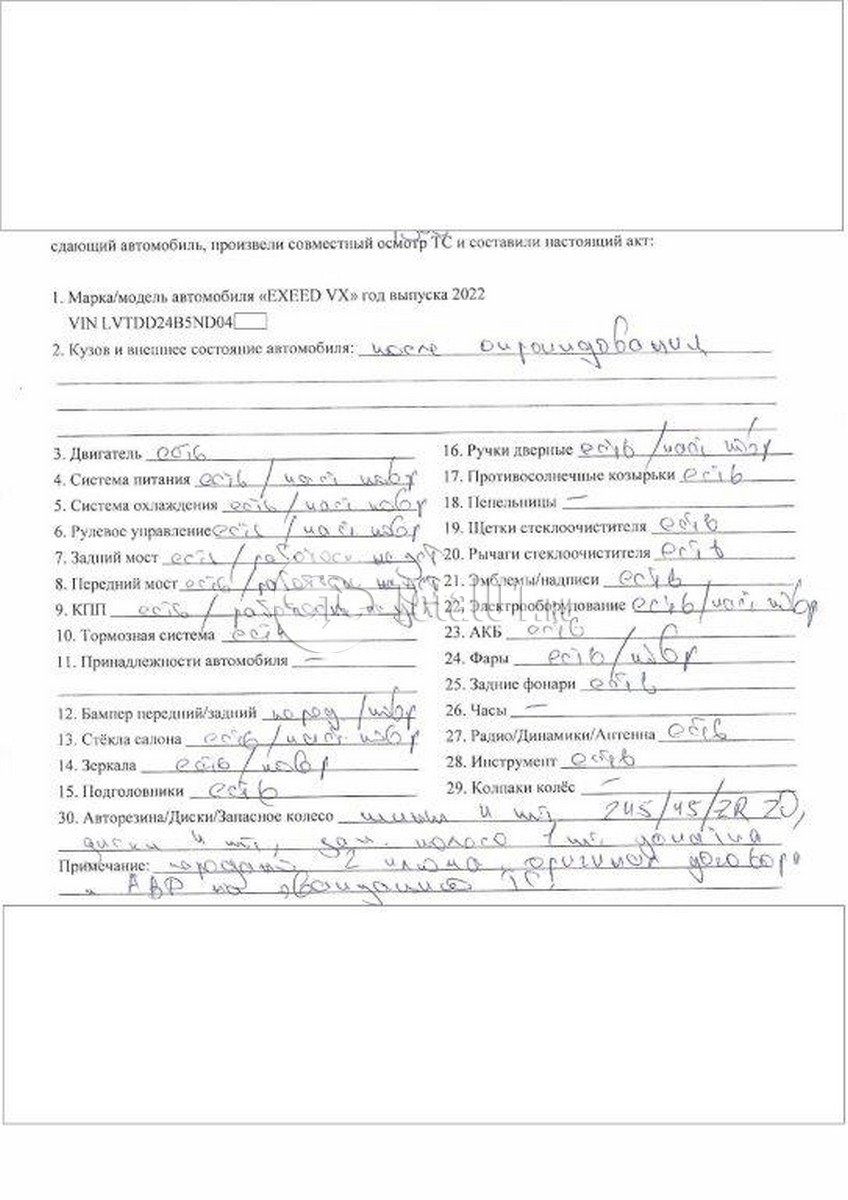 сдающий автомобиль, произвели совместный осмотр ТС и составили настоящий акт:
1. Марка/модель автомобиля «EXEED VX» год выпуска 2022
VIN LVTDD24B5ND04
2. Кузов и внешнее состояние автомобиля: после опрокидования
3. Двигатель есть
4. Система питания есть / част. повр
5. Система охлаждения есть / част. повр
6. Рулевое управление есть / част. повр
7. Задний мост есть /
8. Передний мост есть /
9. КПП есть /
10. Тормозная система есть
11. Принадлежности автомобиля —
12. Бампер передний/задний перед / повр
13. Стёкла салона есть / част. повр
14. Зеркала есть / повр
15. Подголовники есть
16. Ручки дверные есть / част. повр
17. Противосолнечные козырьки есть
18. Пепельницы —
19. Щетки стеклоочистителя есть
20. Рычаги стеклоочистителя есть
21. Эмблемы/надписи есть
22. Электрооборудование есть / част. повр
23. АКБ есть
24. Фары есть / повр
25. Задние фонари есть
26. Часы —
27. Радио/Динамики/Антенна есть
28. Инструмент есть
29. Колпаки колёс —
30. Авторезина/Диски/Запасное колесо шины 4 шт. 245/45/ZR 20,
диски 4 шт, зап. колесо 1 шт. донатка
Примечание: 2 ключа, оригинал договора
и АВР на эвакуацию ТС.